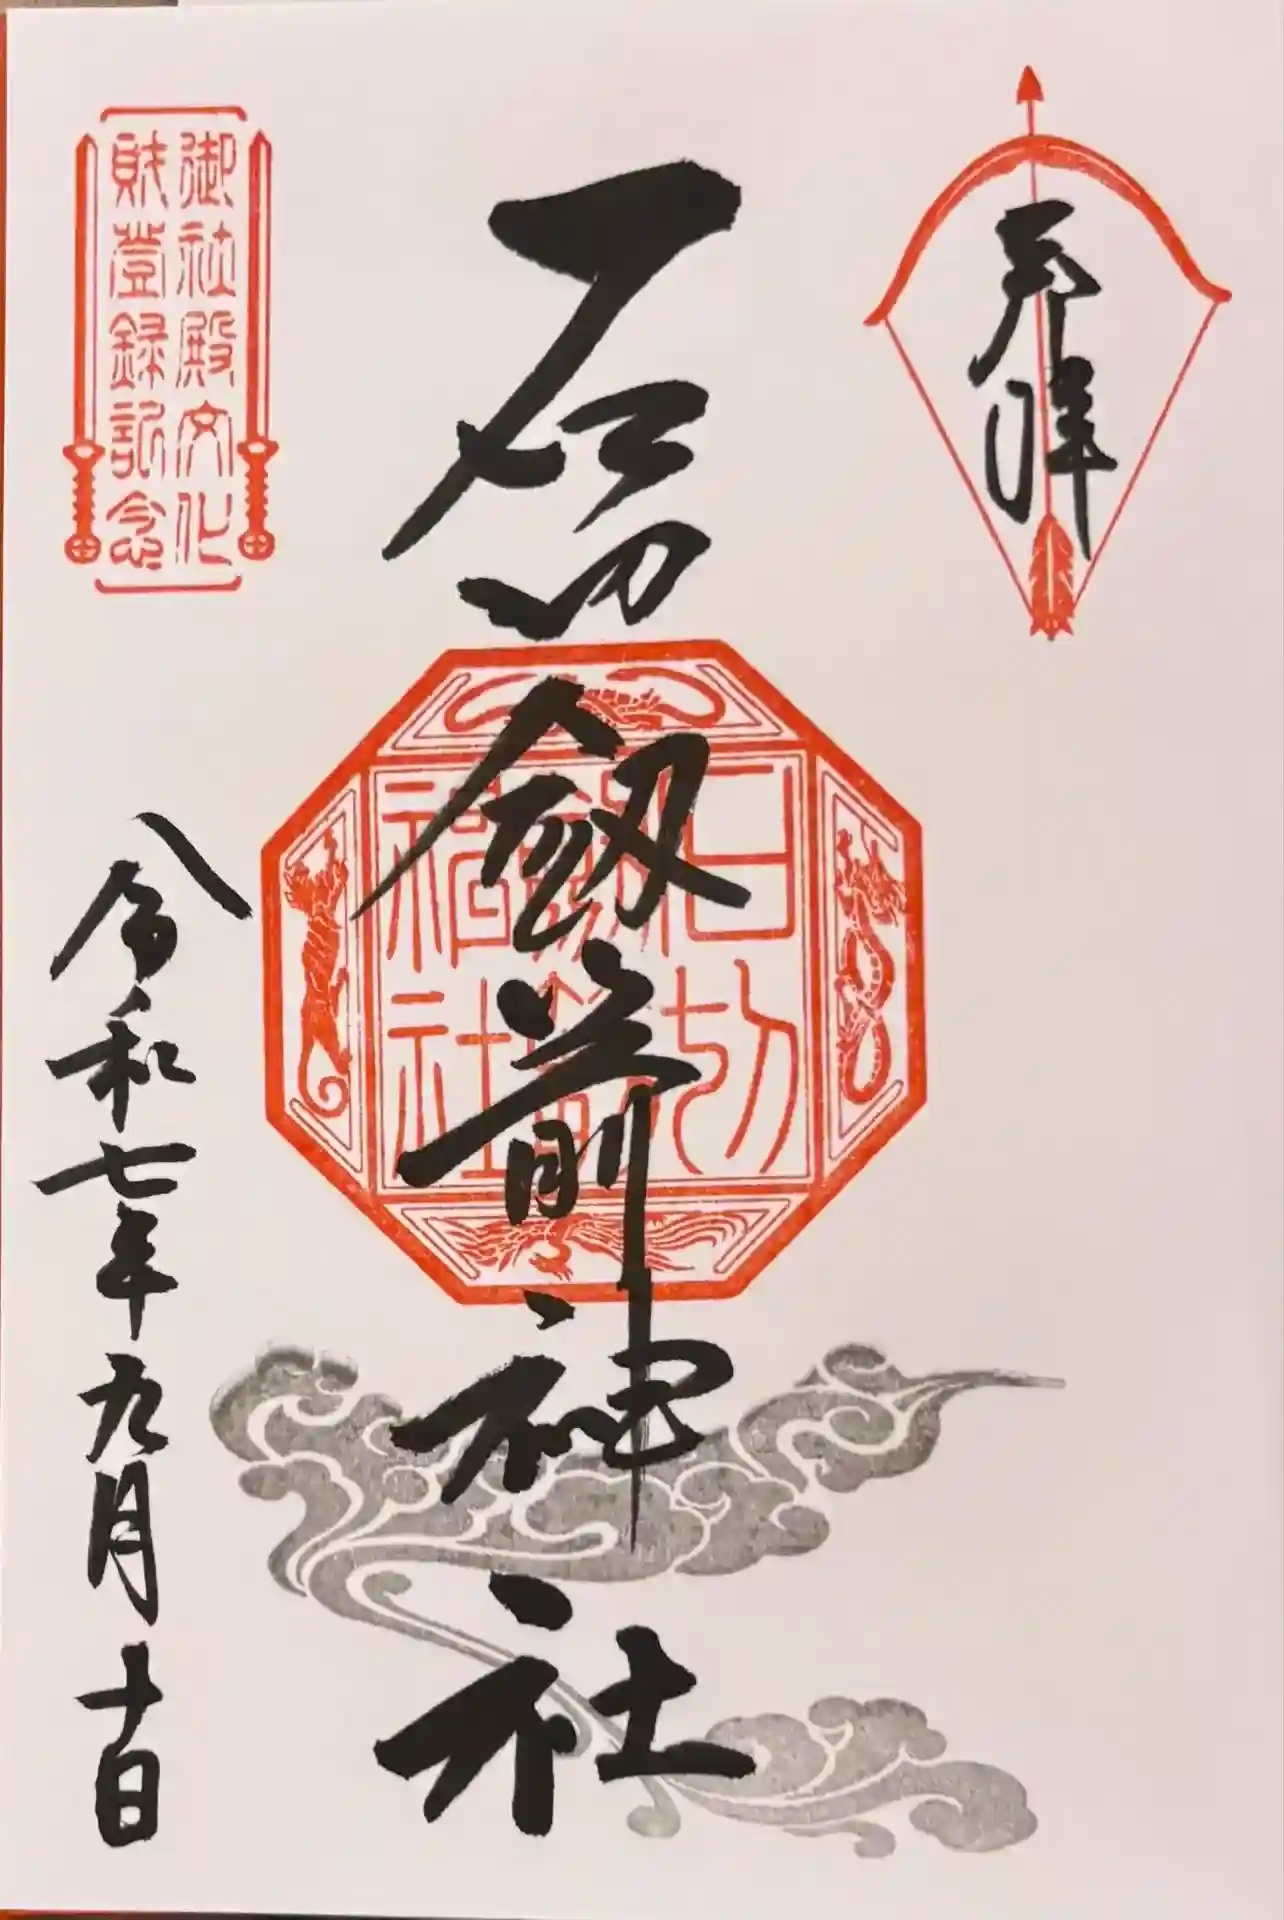 奉拝
石切劔箭神社
石切
劔箭
神社
御社殿文化
財登録記念
令和七年九月十日